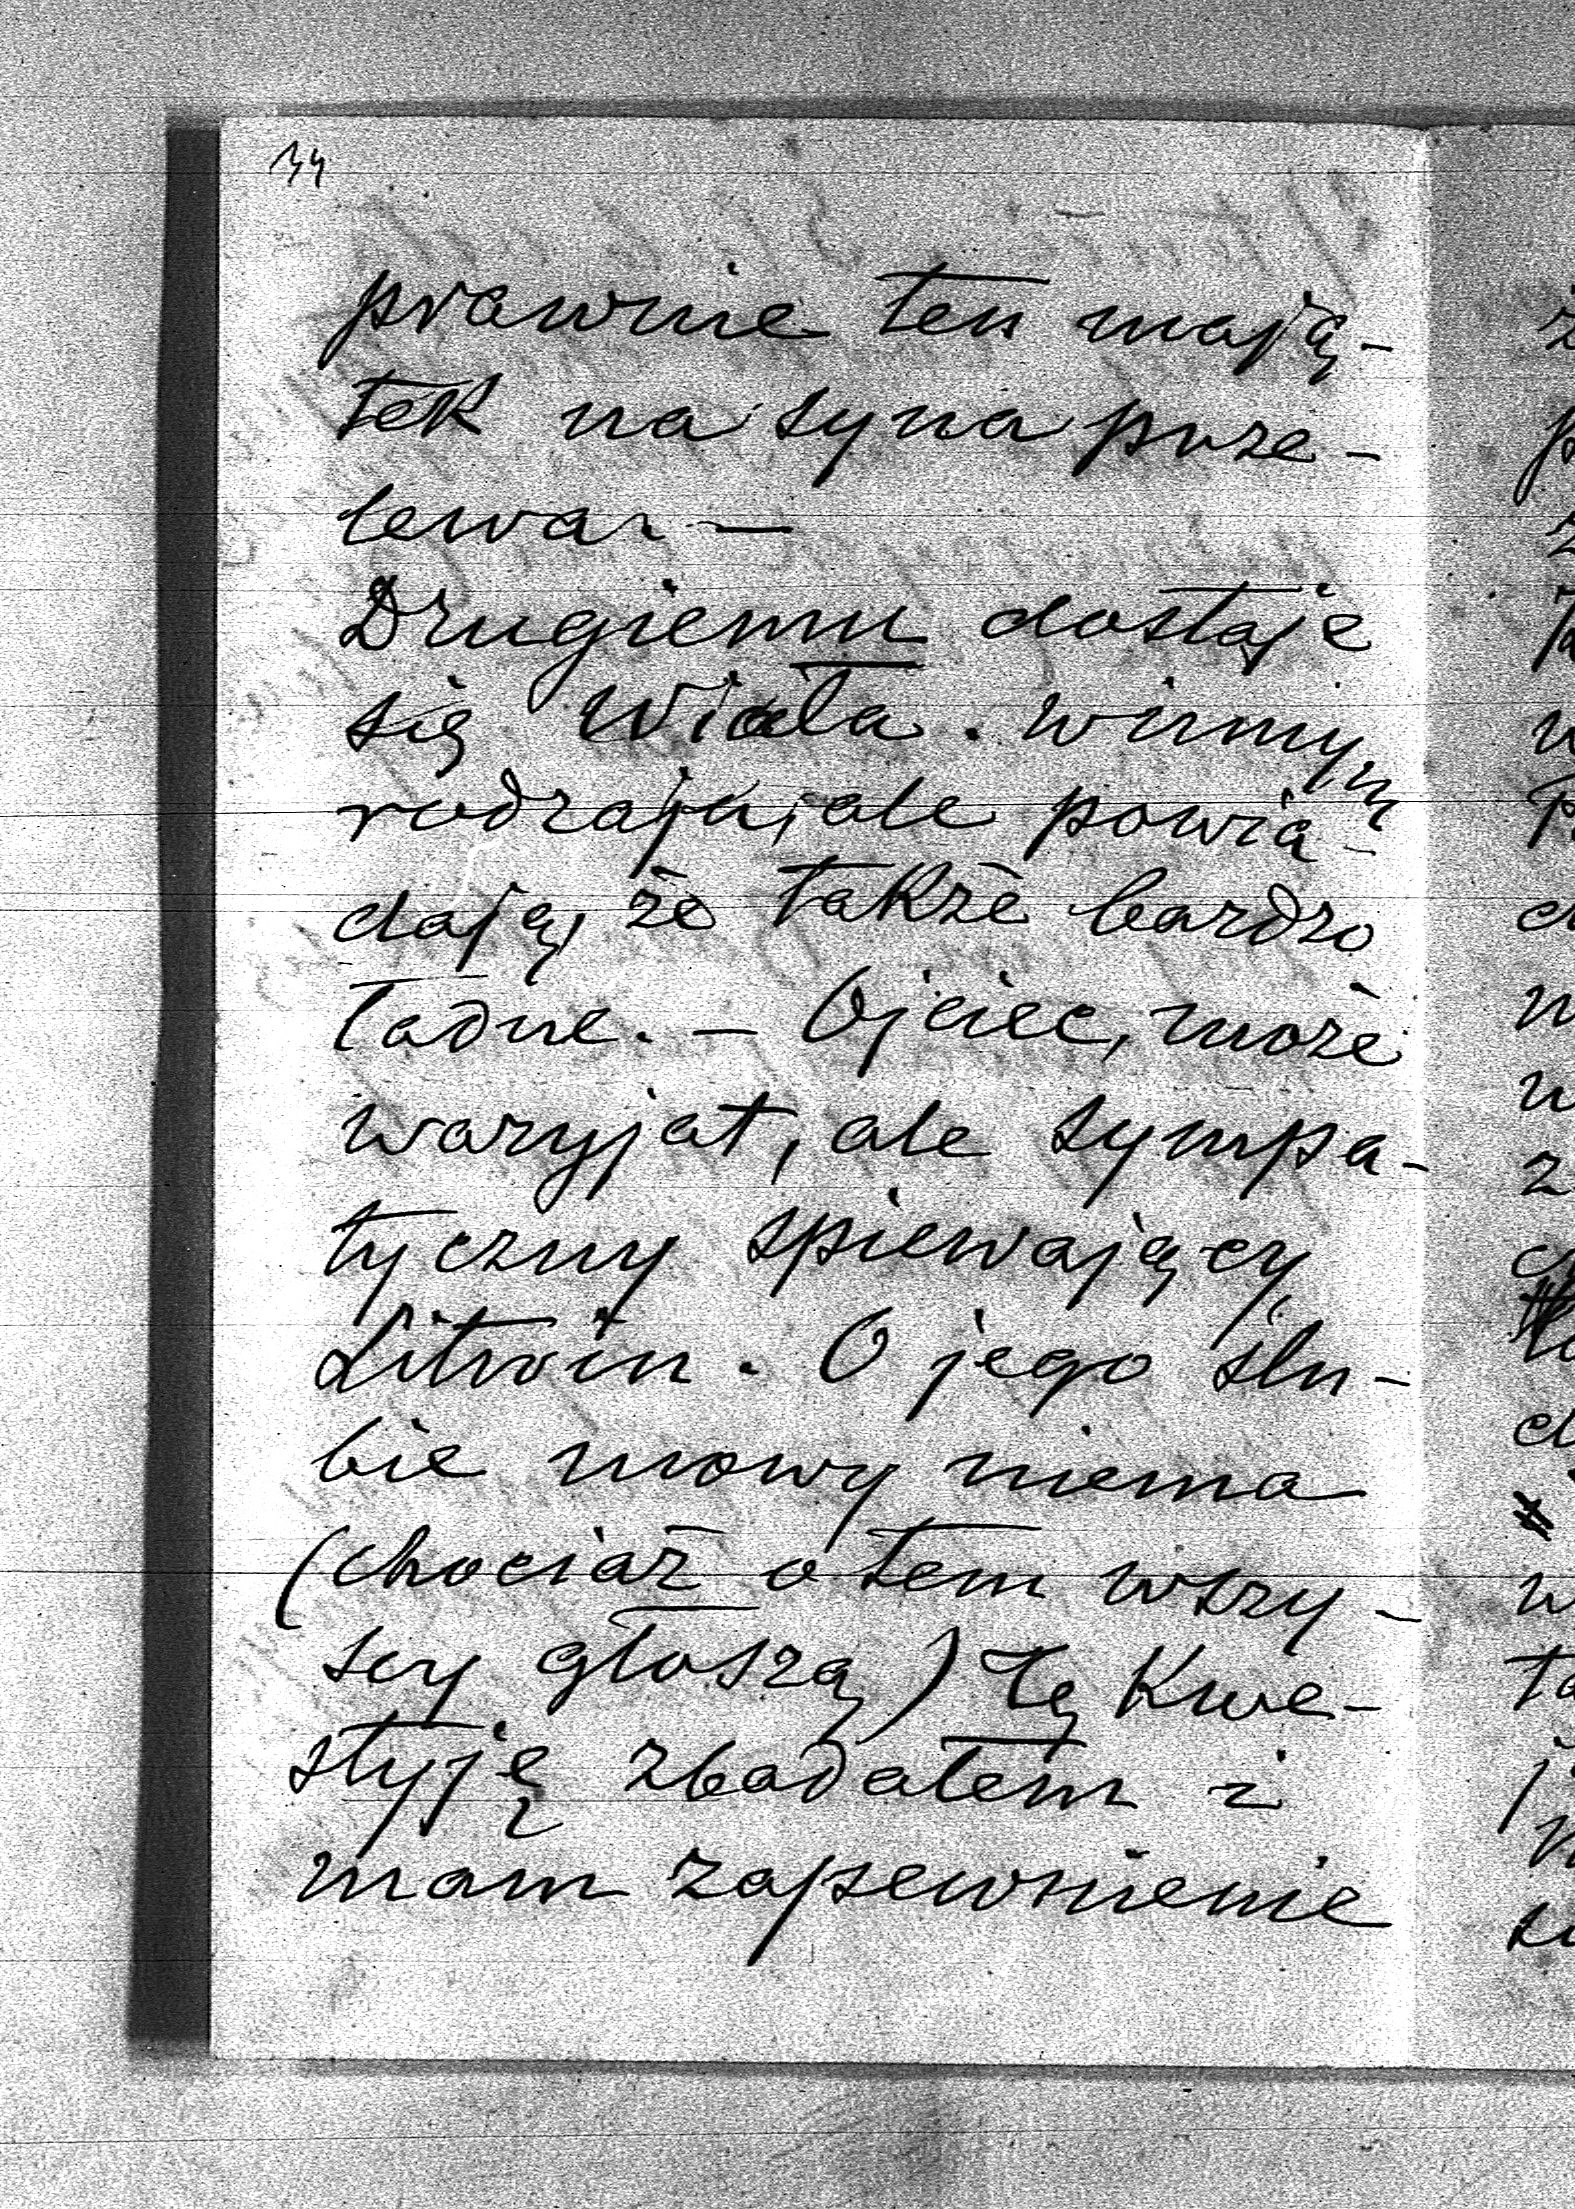 34
prawnie ten mają-
tek na syna prze-
lewa. —
Drugiemu dostaje
się Wiała. w innym
rodzaju, ale powia-
dają, że także bardzo
ładne. — Ojciec, może
waryjat, ale sympa-
tyczny śpiewający
Litwin. O jego ślu-
bie mowy niema
(chociaż o tem wszy-
scy głoszą) tę kwe-
styję zbadałem i
mam zapewnienie